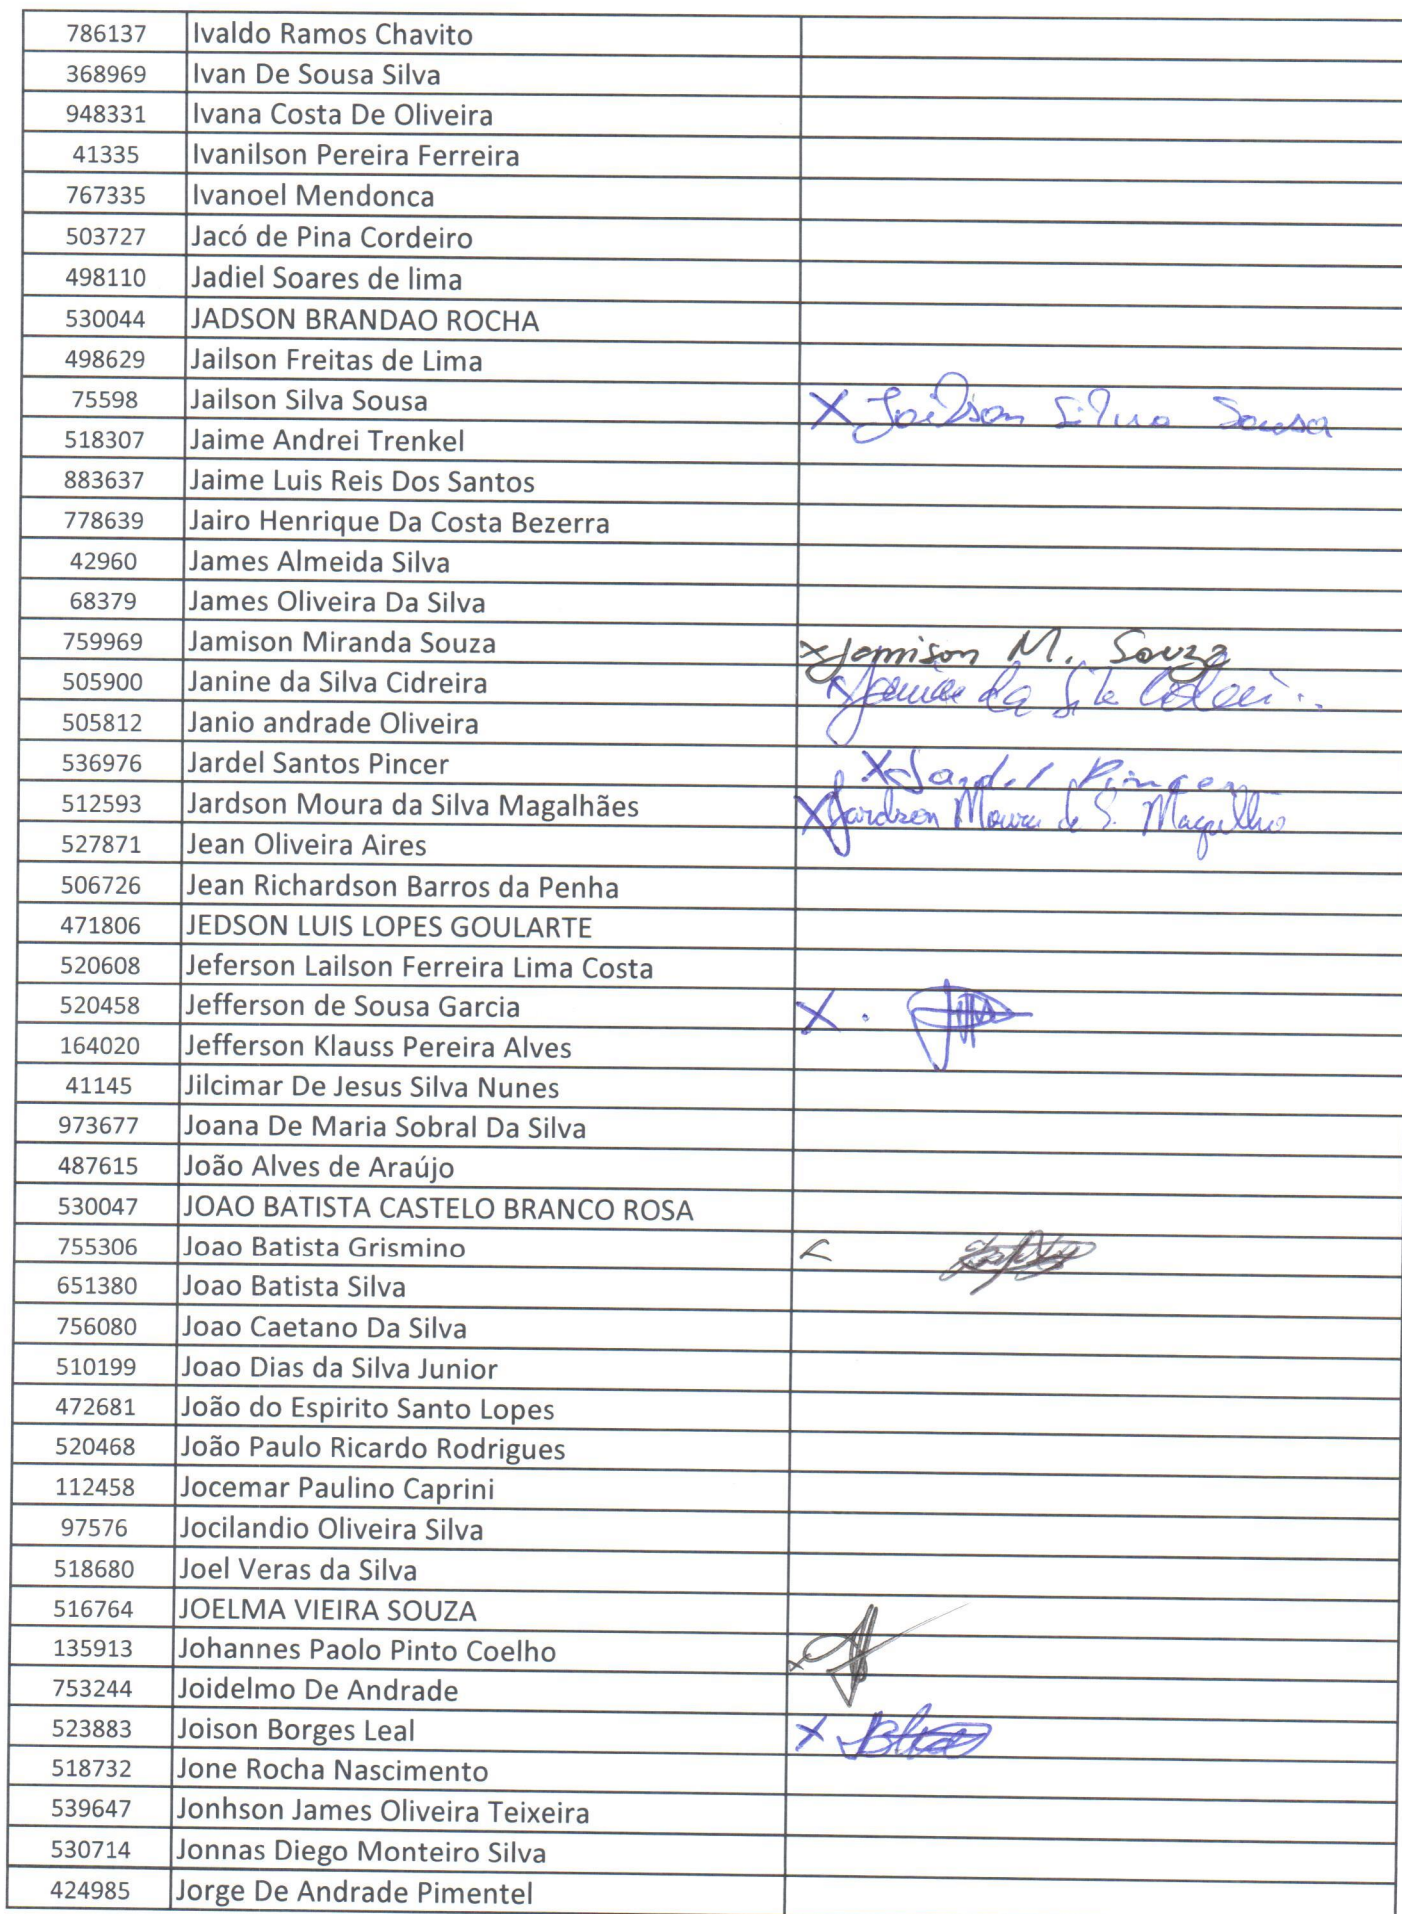 786137 Ivaldo Ramos Chavito
368969 Ivan De Sousa Silva
948331 Ivana Costa De Oliveira
41335 Ivanilson Pereira Ferreira
767335 Ivanoel Mendonca
503727 Jacó de Pina Cordeiro
498110 Jadiel Soares de lima
530044 JADSON BRANDAO ROCHA
498629 Jailson Freitas de Lima
75598 Jailson Silva Sousa X Jailson Silva Sousa
518307 Jaime Andrei Trenkel
883637 Jaime Luis Reis Dos Santos
778639 Jairo Henrique Da Costa Bezerra
42960 James Almeida Silva
68379 James Oliveira Da Silva
759969 Jamison Miranda Souza x Jamison M. Souza
505900 Janine da Silva Cidreira x Janine da
505812 Janio andrade Oliveira
536976 Jardel Santos Pincer X Jardel Pincer
512593 Jardson Moura da Silva Magalhães X Jardson Moura da S. Magalhão
527871 Jean Oliveira Aires
506726 Jean Richardson Barros da Penha
471806 JEDSON LUIS LOPES GOULARTE
520608 Jeferson Lailson Ferreira Lima Costa
520458 Jefferson de Sousa Garcia X
164020 Jefferson Klauss Pereira Alves
41145 Jilcimar De Jesus Silva Nunes
973677 Joana De Maria Sobral Da Silva
487615 João Alves de Araújo
530047 JOAO BATISTA CASTELO BRANCO ROSA
755306 Joao Batista Grismino
651380 Joao Batista Silva
756080 Joao Caetano Da Silva
510199 Joao Dias da Silva Junior
472681 João do Espirito Santo Lopes
520468 João Paulo Ricardo Rodrigues
112458 Jocemar Paulino Caprini
97576 Jocilandio Oliveira Silva
518680 Joel Veras da Silva
516764 JOELMA VIEIRA SOUZA
135913 Johannes Paolo Pinto Coelho x
753244 Joidelmo De Andrade
523883 Joison Borges Leal X
518732 Jone Rocha Nascimento
539647 Jonhson James Oliveira Teixeira
530714 Jonnas Diego Monteiro Silva
424985 Jorge De Andrade Pimentel